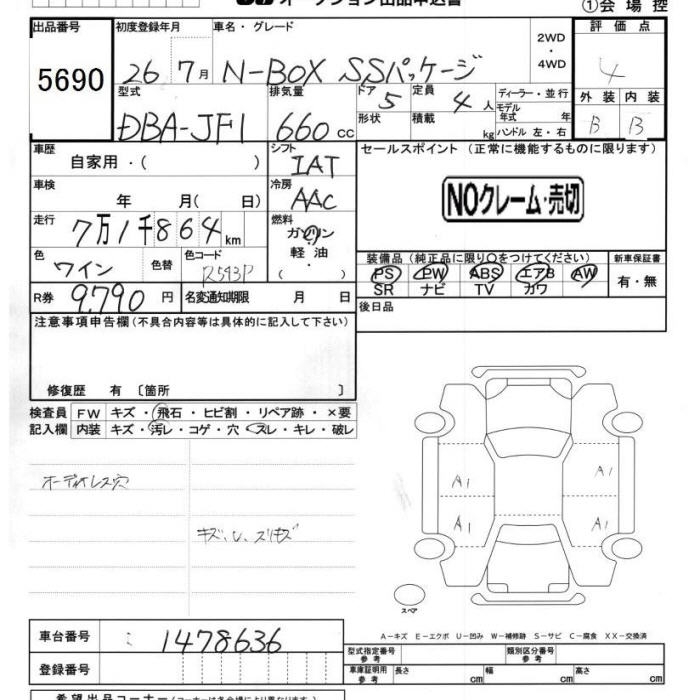 オークション出品申込書 ①会場控
出品番号 初度登録年月 車名・グレード 2WD ・ 4WD 評価点
5690 26 7月 N-BOX SSパッケージ 4
型式 排気量 ドア 5 定員 4人 ディーラー・並行 外装 内装
DBA-JF1 660cc 形状 積載 kg モデル年式 年 ハンドル 左・右 B B
車歴 自家用・( ) シフト IAT セールスポイント (正常に機能するものに限ります)
車検 年 月( 日) 冷房 AAC NOクレーム・売切
走行 7万1千864km 燃料 ガソリン 軽油 ( ・ )
色 ワイン 色替 色コード R543P 装備品 (純正品に限り○をつけてください) 新車保証書
PS PW ABS エアB AW 有・無
SR ナビ TV カワ
R券 9,790円 名変通知期限 月 日 後日品
注意事項申告欄 (不具合内容等は具体的に記入して下さい)
修復歴 有 〔箇所 〕
検査員 FW キズ・飛石・ヒビ割・リペア跡・×要
記入欄 内装 キズ・汚レ・コゲ・穴・スレ・キレ・破レ
オーディオレス穴
A1 A1
キズ、U、スリキズ
A1 A1
スペア
A-キズ E-エクボ U-凹み W-補修跡 S-サビ C-腐食 XX-交換済
車台番号 : 1478636
型式指定番号 参考 類別区分番号 参考
登録番号 車庫証明用 参考 長さ cm 幅 cm 高さ cm
希望出品コーナー (コーナーは各会場により異なります)